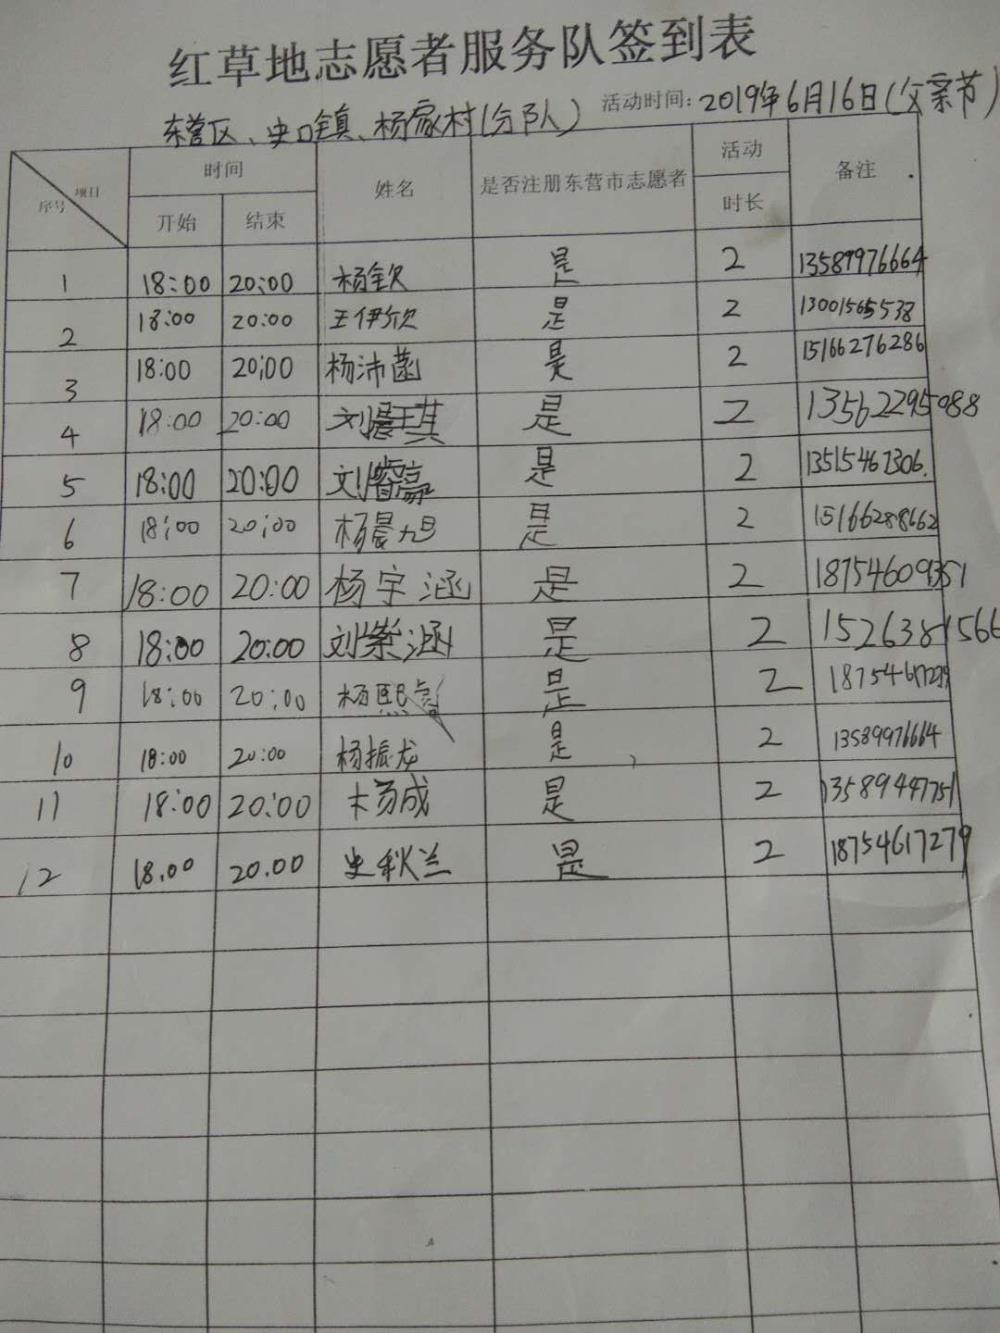 红草地志愿者服务队签到表
东营区、史口镇、杨家村(分队) 活动时间: 2019年6月16日(父亲节)
项目 序号 时间 姓名 是否注册东营市志愿者 活动 备注
开始 结束 时长
1 18:00 20:00 杨钦 是 2 13589976664
2 18:00 20:00 王伊欣 是 2 13001565538
3 18:00 20:00 杨沛菡 是 2 15166276286
4 18:00 20:00 刘 是 2 13562295088
5 18:00 20:00 刘睿 是 2 13515461306.
6 18:00 20:00 杨晨旭 是 2 15166288662
7 18:00 20:00 杨宇涵 是 2 18754609351
8 18:00 20:00 刘紫涵 是 2 15263841566
9 18:00 20:00 杨熙 是 2
10 18:00 20:00 杨振龙 是 2 13589976664
11 18:00 20:00 杨成 是 2 13589447751
12 18.00 20.00 史秋兰 是 2 18754617279